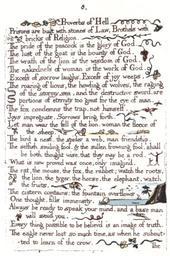 8.
Proverbs of Hell
Prisons are built with stones of Law, Brothels with
bricks of Religion.
The pride of the peacock is the glory of God.
The lust of the goat is the bounty of God.
The wrath of the lion is the wisdom of God.
The nakedness of woman is the work of God.
Excess of sorrow laughs. Excess of joy weeps.
The roaring of lions, the howling of wolves, the raging
of the stormy sea, and the destructive sword. are
portions of eternity too great for the eye of man.
The fox condemns the trap, not himself.
Joys impregnate. Sorrows bring forth.
Let man wear the fell of the lion. woman the fleece of
the sheep.
The bird a nest, the spider a web, man friendship.
The selfish smiling fool, & the sullen frowning fool. shall
be both thought wise. that they may be a rod.
What is now proved was once, only imagin'd.
The rat, the mouse, the fox, the rabbet; watch the roots,
the lion, the tyger, the horse, the elephant, watch
the fruits.
The cistern contains: the fountain overflows
One thought. fills immensity.
Always be ready to speak your mind, and a base man
will avoid you.
Every thing possible to be believ'd is an image of truth.
The eagle never lost so much time, as when he submit-
-ted to learn of the crow.
The